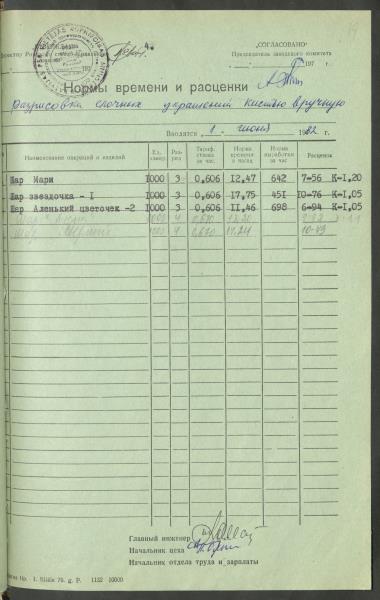 „СОГЛАСОВАНО“
Председатель заводского комитета
197 г.
Нормы времени и расценки
Разрисовка елочных украшений кистью вручную
Вводятся „ 1 “ июня 1982 г.
Наименование операций и изделий Ед. измер. Раз-ряд Тариф. ставка за час. Норма времени в часах Норма выработки за час Расценок
Шар Мари 1000 3 0,606 12,47 642 7-56 К-1,20
Шар звездочка - I 1000 3 0,606 17,75 451 10-76 К-1,05
Шар Аленький цветочек -2 1000 3 0,606 11,46 698 6-94 К-1,05
1000 4 0,670
Шар 1000 4 0,670 10-49
Главный инженер
Начальник цеха
Начальник отдела труда и зарплаты
1152 10000